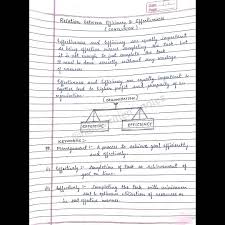 Relation between Efficiency & Effectiveness
(CONCLUSION)
Effectiveness and Efficiency are equally important
as being effective means completing the task but
it is not enough to just complete the task. It
need to be done usefully without any wastage
of resources
Effectiveness and Efficiency are equally important &
together lead to higher profit and prosperity of
ORGANISATION
EFFICIENCY
EFFECTIVE
KEYWORDS :-
Management :- A process to achieve goal efficiently
and effectively.
Effectively :- Completion of task or achievement of
goal on time.
Efficiently :- Completing the task with minimum
cost & optimum utilization of resources or
in cost effective manner.